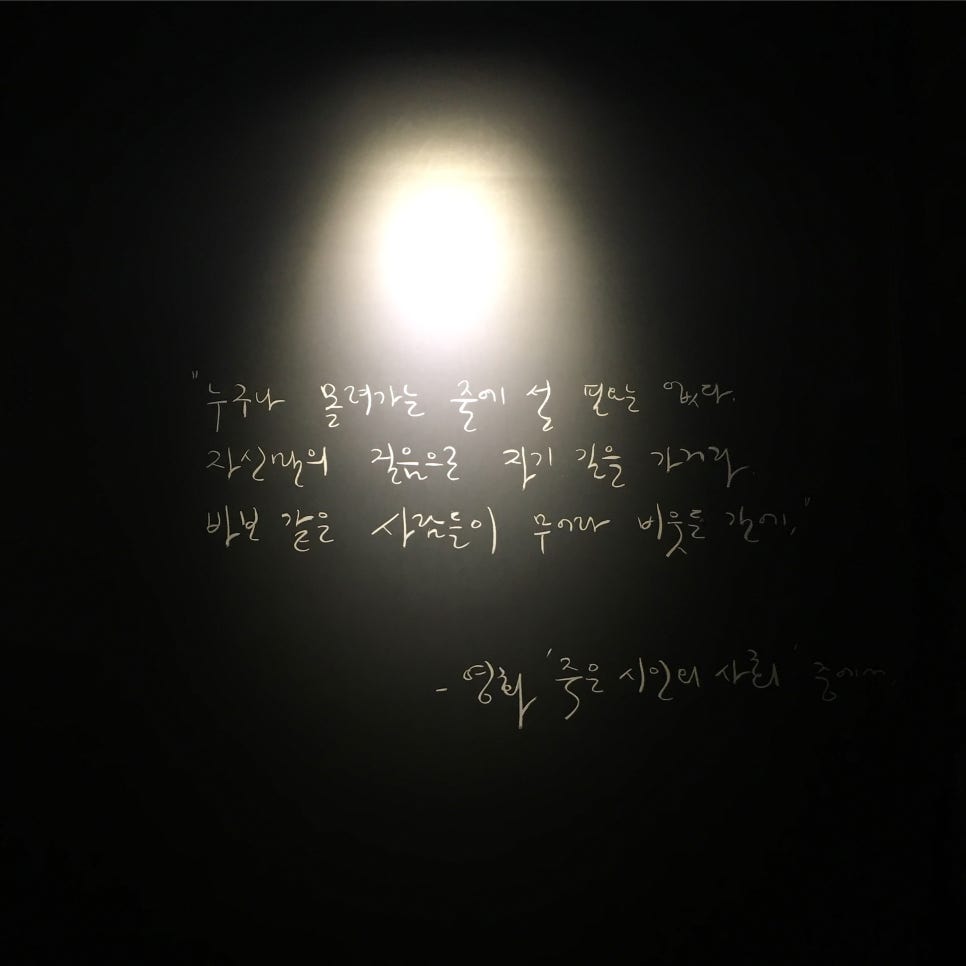 "누구나 몰려가는 줄에 설 필요는 없다.
자신만의 걸음으로 자기 길을 가거라.
바보 같은 사람들이 무어라 비웃든 간에."
- 영화 '죽은 시인의 사회' 중에서.